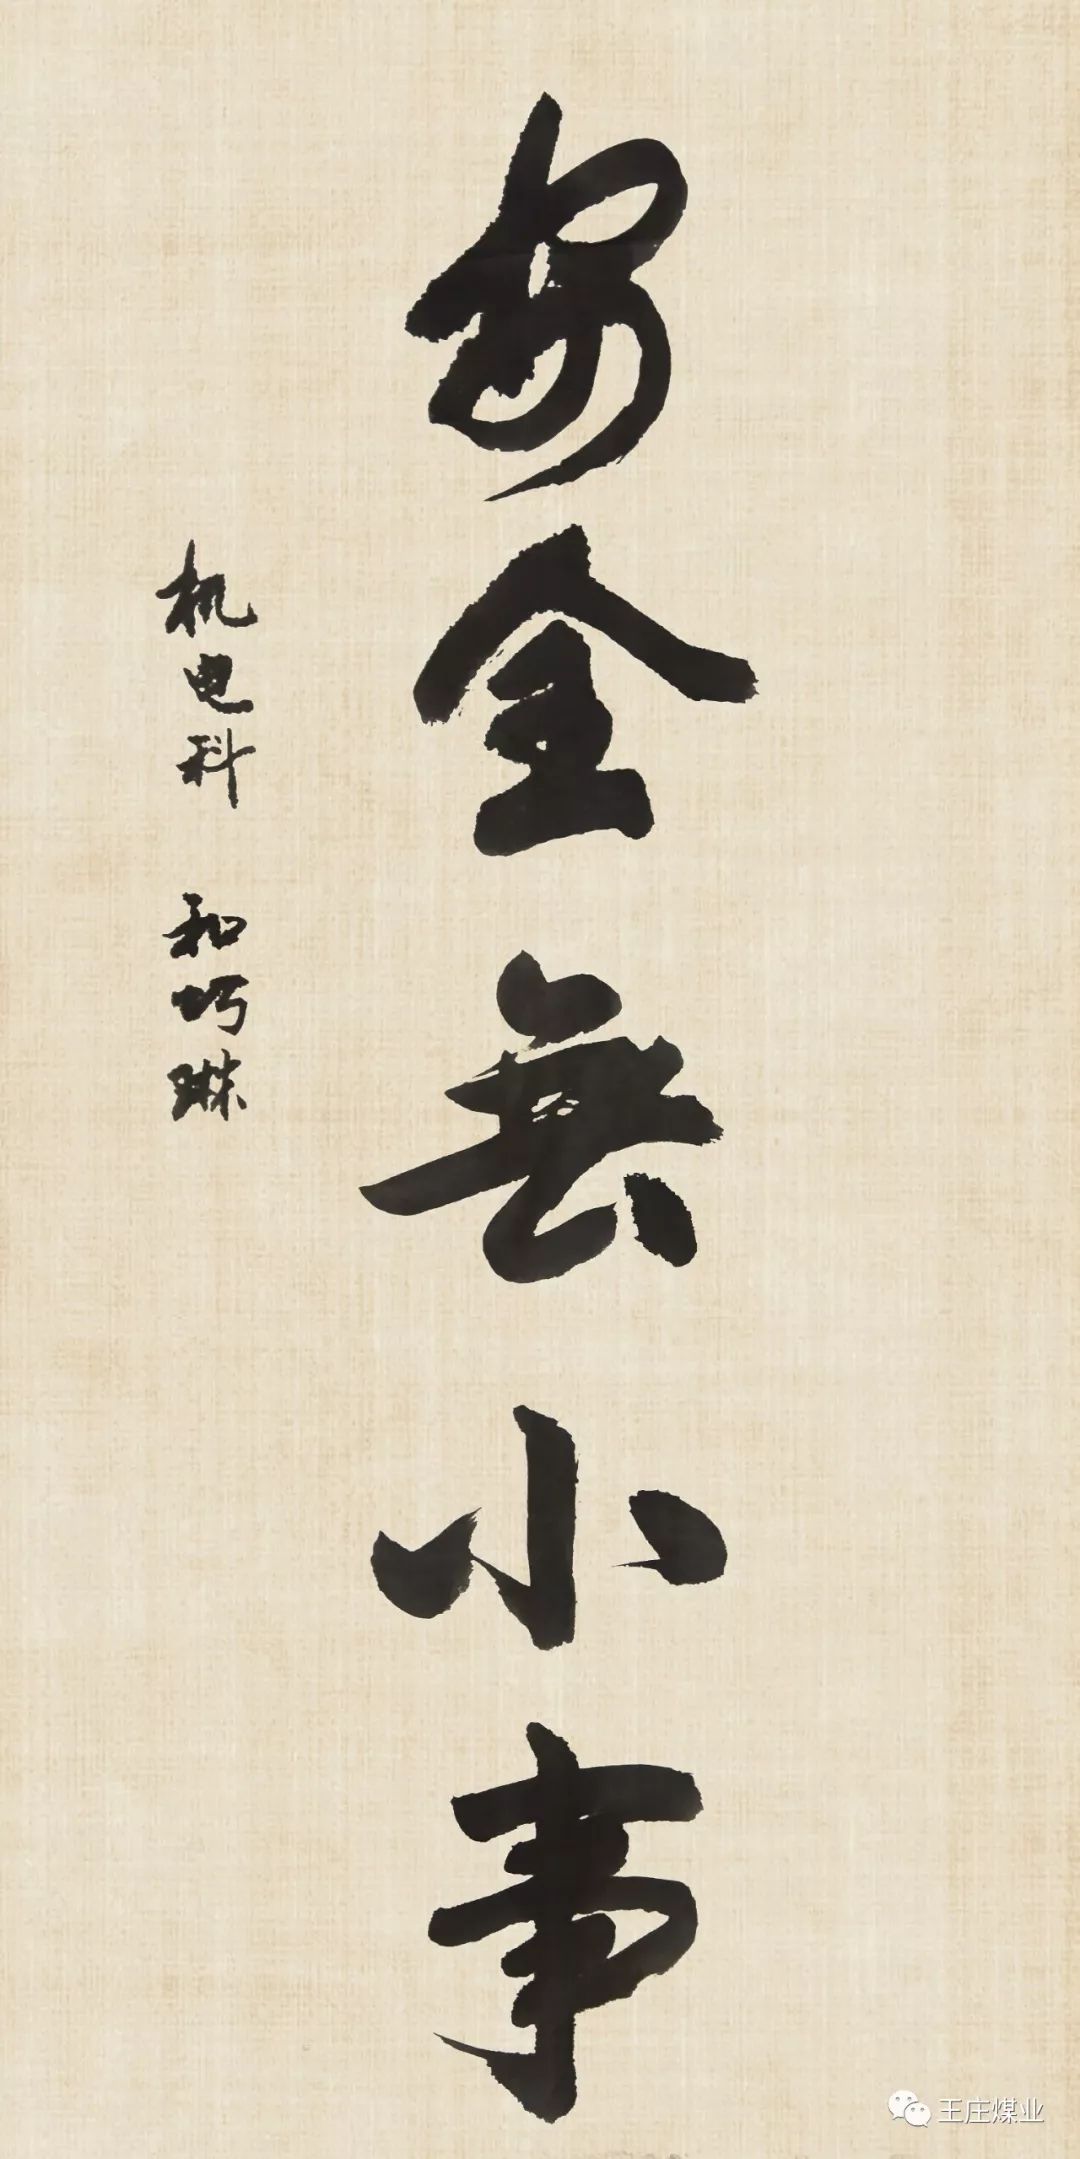 安全無小事
机电科 和巧琳
王庄煤业